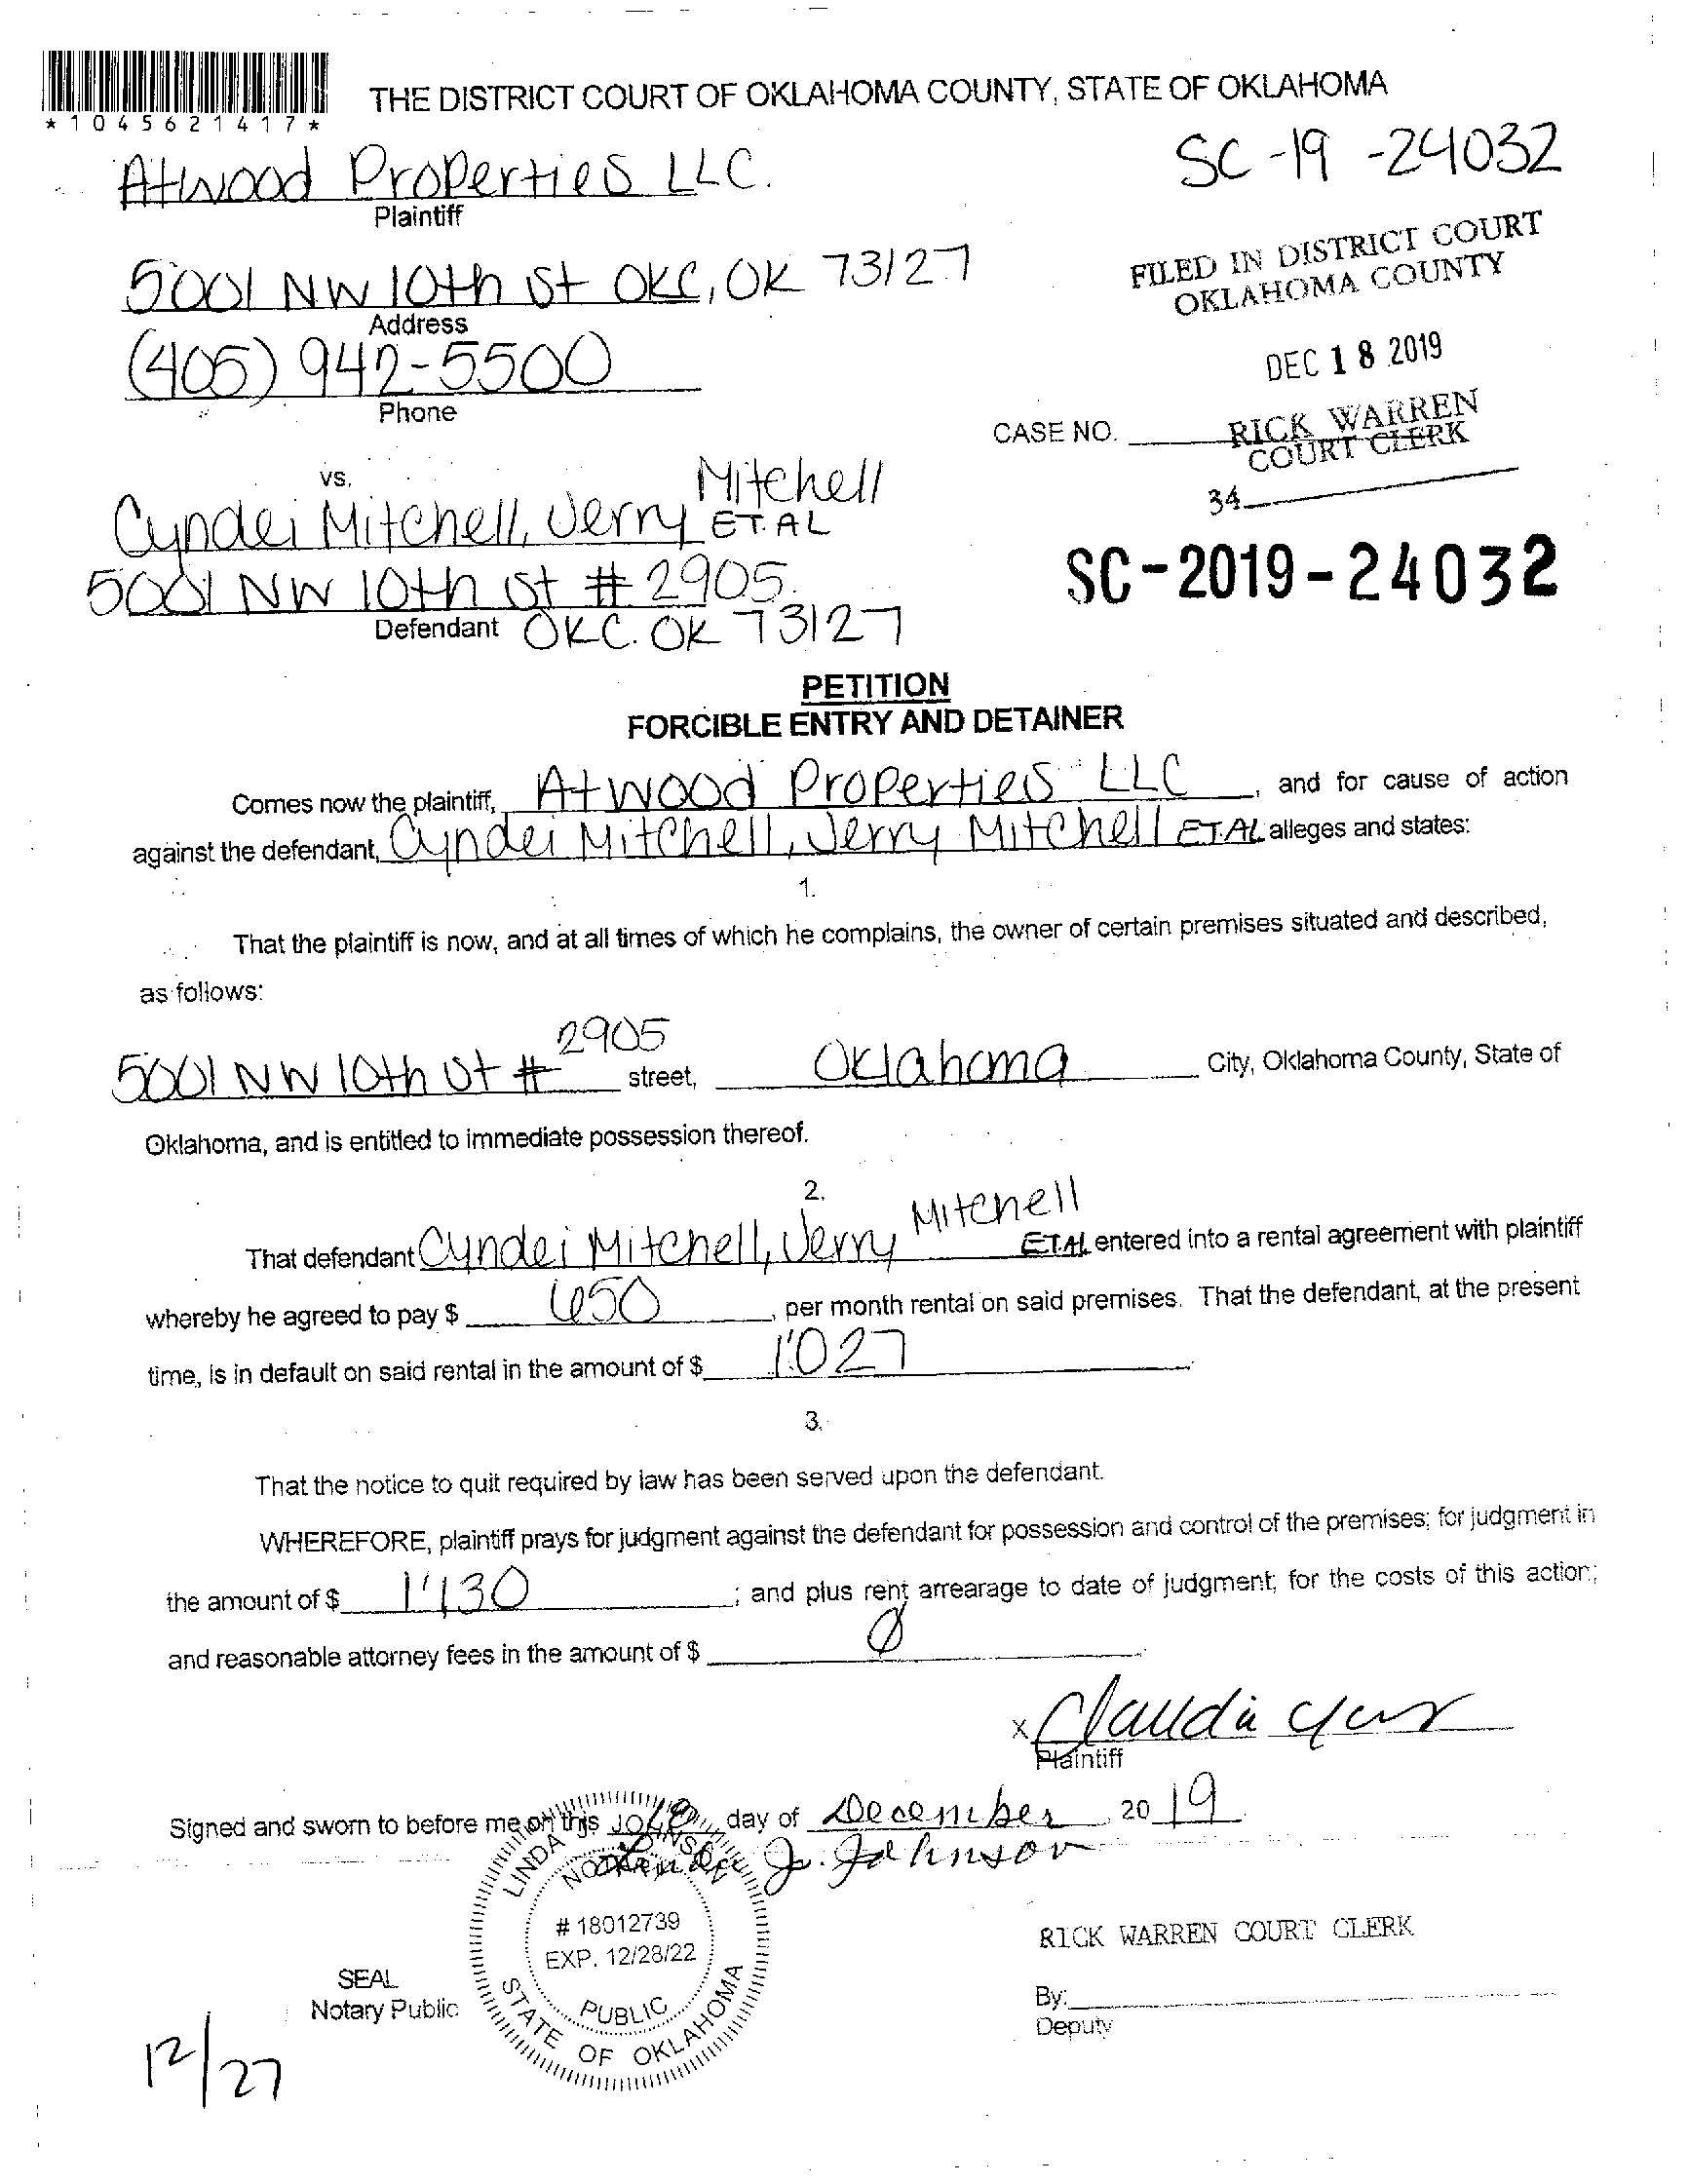 THE DISTRICT COURT OF OKLAHOMA COUNTY, STATE OF OKLAHOMA
*1045621417*
Atwood Properties LLC.
SC-19-24032
Plaintiff
FILED IN DISTRICT COURT
OKLAHOMA COUNTY
5001 NW 10th St OKC, OK 73127
Address
DEC 18 2019
(405) 942-5500
Phone
CASE NO.
RICK WARREN
COURT CLERK
34
vs.
Cyndei Mitchell, Jerry Mitchell
ET. AL
5001 NW 10th St # 2905
SC-2019-24032
Defendant OKC. OK 73127
PETITION
FORCIBLE ENTRY AND DETAINER
Comes now the plaintiff, Atwood Properties LLC, and for cause of action
against the defendant, Cyndei Mitchell, Jerry Mitchell ET.AL alleges and states:
1.
That the plaintiff is now, and at all times of which he complains, the owner of certain premises situated and described,
as follows:
5001 NW 10th St # 2905 street, Oklahoma City, Oklahoma County, State of
Oklahoma, and is entitled to immediate possession thereof.
2.
That defendant Cyndei Mitchell, Jerry Mitchell ET.AL entered into a rental agreement with plaintiff
whereby he agreed to pay $ 650, per month rental on said premises. That the defendant, at the present
time, is in default on said rental in the amount of $ 1'027
3.
That the notice to quit required by law has been served upon the defendant.
WHEREFORE, plaintiff prays for judgment against the defendant for possession and control of the premises; for judgment in
the amount of $ 1'130; and plus rent arrearage to date of judgment; for the costs of this action;
and reasonable attorney fees in the amount of $ Ø
x Claudia
Plaintiff
Signed and sworn to before me on this day of December 2019
Linda J. Johnson
LINDA JOHNSON
NOTARY
# 18012739
EXP. 12/28/22
PUBLIC
STATE OF OKLAHOMA
RICK WARREN COURT CLERK
SEAL
Notary Public
By:
Deputy
12/27